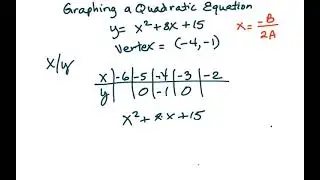 Graphing a Quadratic Equation
y = x² + 8x + 15
x = -B/2A
vertex = (-4, -1)
x/y
x | -6 | -5 | -4 | -3 | -2
y | | 0 | -1 | 0 |
x² + x + 15